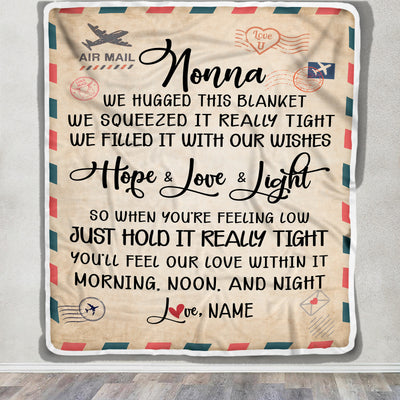 AIR MAIL
Love U
Nonna
WE HUGGED THIS BLANKET
WE SQUEEZED IT REALLY TIGHT
WE FILLED IT WITH OUR WISHES
Hope & Love & Light
SO WHEN YOU'RE FEELING LOW
JUST HOLD IT REALLY TIGHT
YOU'LL FEEL OUR LOVE WITHIN IT
MORNING, NOON, AND NIGHT
Love, NAME